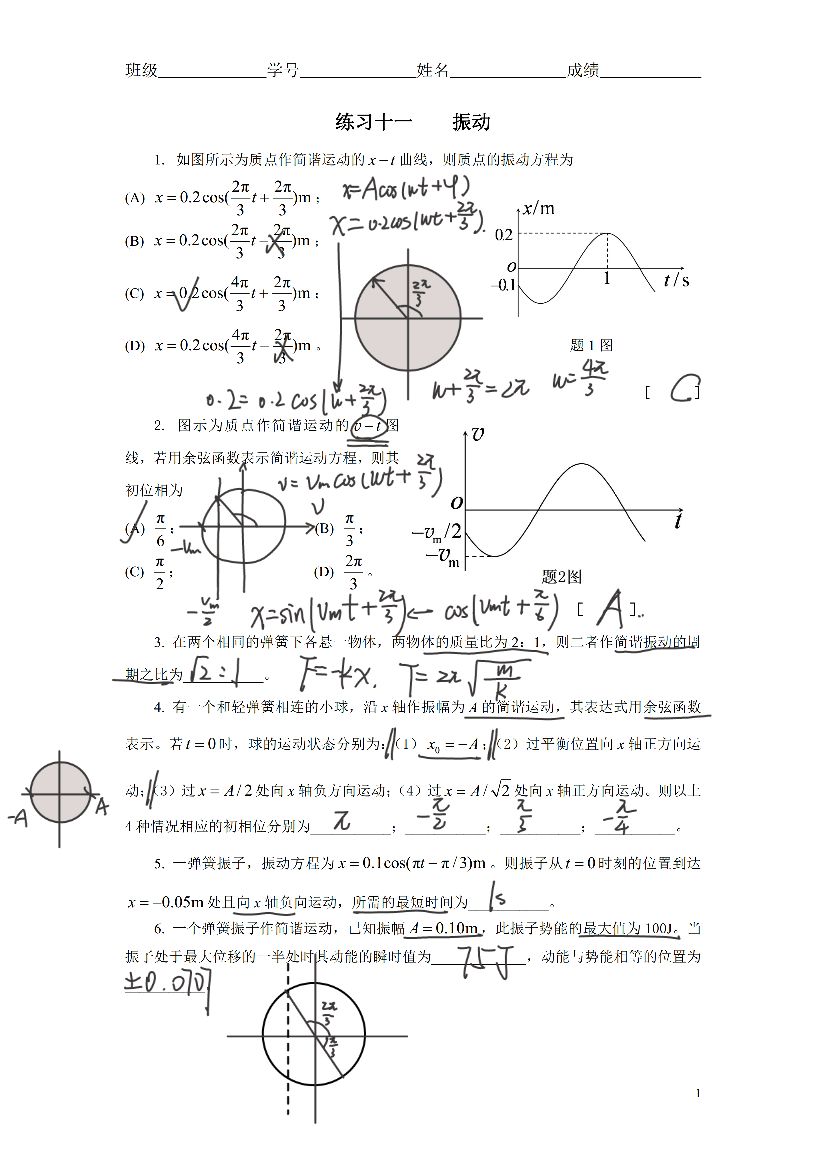 班级 学号 姓名 成绩
练习十一 振动
1. 如图所示为质点作简谐运动的 x－t 曲线，则质点的振动方程为
(A) x = 0.2cos(2π/3 t + 2π/3)m；
x=Acos(wt+φ)
x=0.2cos(wt+2π/3).
(B) x = 0.2cos(2π/3 t − 2π/3)m；
(C) x = 0.2cos(4π/3 t + 2π/3)m；
(D) x = 0.2cos(4π/3 t − 2π/3)m。
2π/3
x/m
0.2
O
−0.1
1
t/s
题 1 图
0.2=0.2cos(w+2π/3)
w+2π/3=2π w=4π/3
[ C ]
2. 图示为质点作简谐运动的 v－t 图
线，若用余弦函数表示简谐运动方程，则其
初位相为
v=Vmcos(wt+2π/3)
v
(A) π/6；
(B) π/3；
(C) π/2；
(D) 2π/3。
−Vm
−Vm/2
v
O
−vm/2
−vm
t
题2图
x=sin(Vmt+2π/3)↔cos(Vmt+π/6) [ A ].
3. 在两个相同的弹簧下各悬一物体，两物体的质量比为 2：1，则二者作简谐振动的周
期之比为 √2:1 。 F=-kx. T=2π√(m/k)
4. 有一个和轻弹簧相连的小球，沿 x 轴作振幅为 A 的简谐运动，其表达式用余弦函数
表示。若 t = 0 时，球的运动状态分别为：（1）x₀ = −A；（2）过平衡位置向 x 轴正方向运
动；（3）过 x = A/2 处向 x 轴负方向运动；（4）过 x = A/√2 处向 x 轴正方向运动、则以上
4 种情况相应的初相位分别为 π ； -π/2 ； π/3 ； -π/4 。
-A A
5. 一弹簧振子，振动方程为 x = 0.1cos(πt − π/3)m 。则振子从 t = 0 时刻的位置到达
x = −0.05m 处且向 x 轴负向运动，所需的最短时间为 1s 。
6. 一个弹簧振子作简谐运动，已知振幅 A = 0.10m，此振子势能的最大值为 100J。当
振子处于最大位移的一半处时其动能的瞬时值为 75J ，动能与势能相等的位置为
±0.0707
2π/3
π/3
1